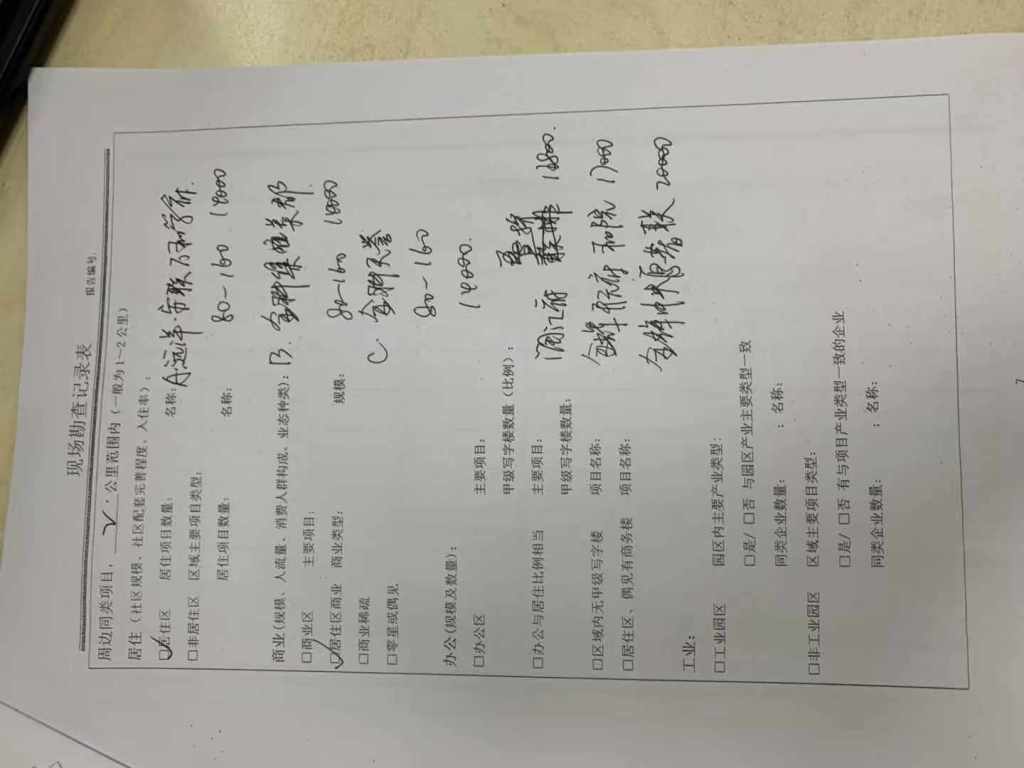 现场勘查记录表
报告编号:
周边同类项目, 2 公里范围内(一般为1~2公里)
居住(社区规模、社区配套完善程度、入住率):
□居住区 居住项目数量: 名称: A远洋
□非居住区 区域主要项目类型: 80-160 18000
居住项目数量: 名称:
商业(规模、人流量、消费人群构成、业态种类): B. 金科集美郡
□商业区 主要项目: 80-160 18000
□居住区商业 商业类型: 规模:
□商业稀疏 C. 金科天誉
□零星或偶见 80-160
办公(规模及数量): 18000.
□办公区 主要项目:
甲级写字楼数量(比例):
□办公与居住比例相当 主要项目:
甲级写字楼数量:
□区域内无甲级写字楼 项目名称: 17000
□居住区、偶见有商务楼 项目名称: 20000
工业:
□工业园区 园区内主要产业类型:
□是/□否 与园区产业主要类型一致
同类企业数量: ; 名称:
□非工业园区 区域主要项目类型:
□是/□否 有与项目产业类型一致的企业
同类企业数量: ; 名称: